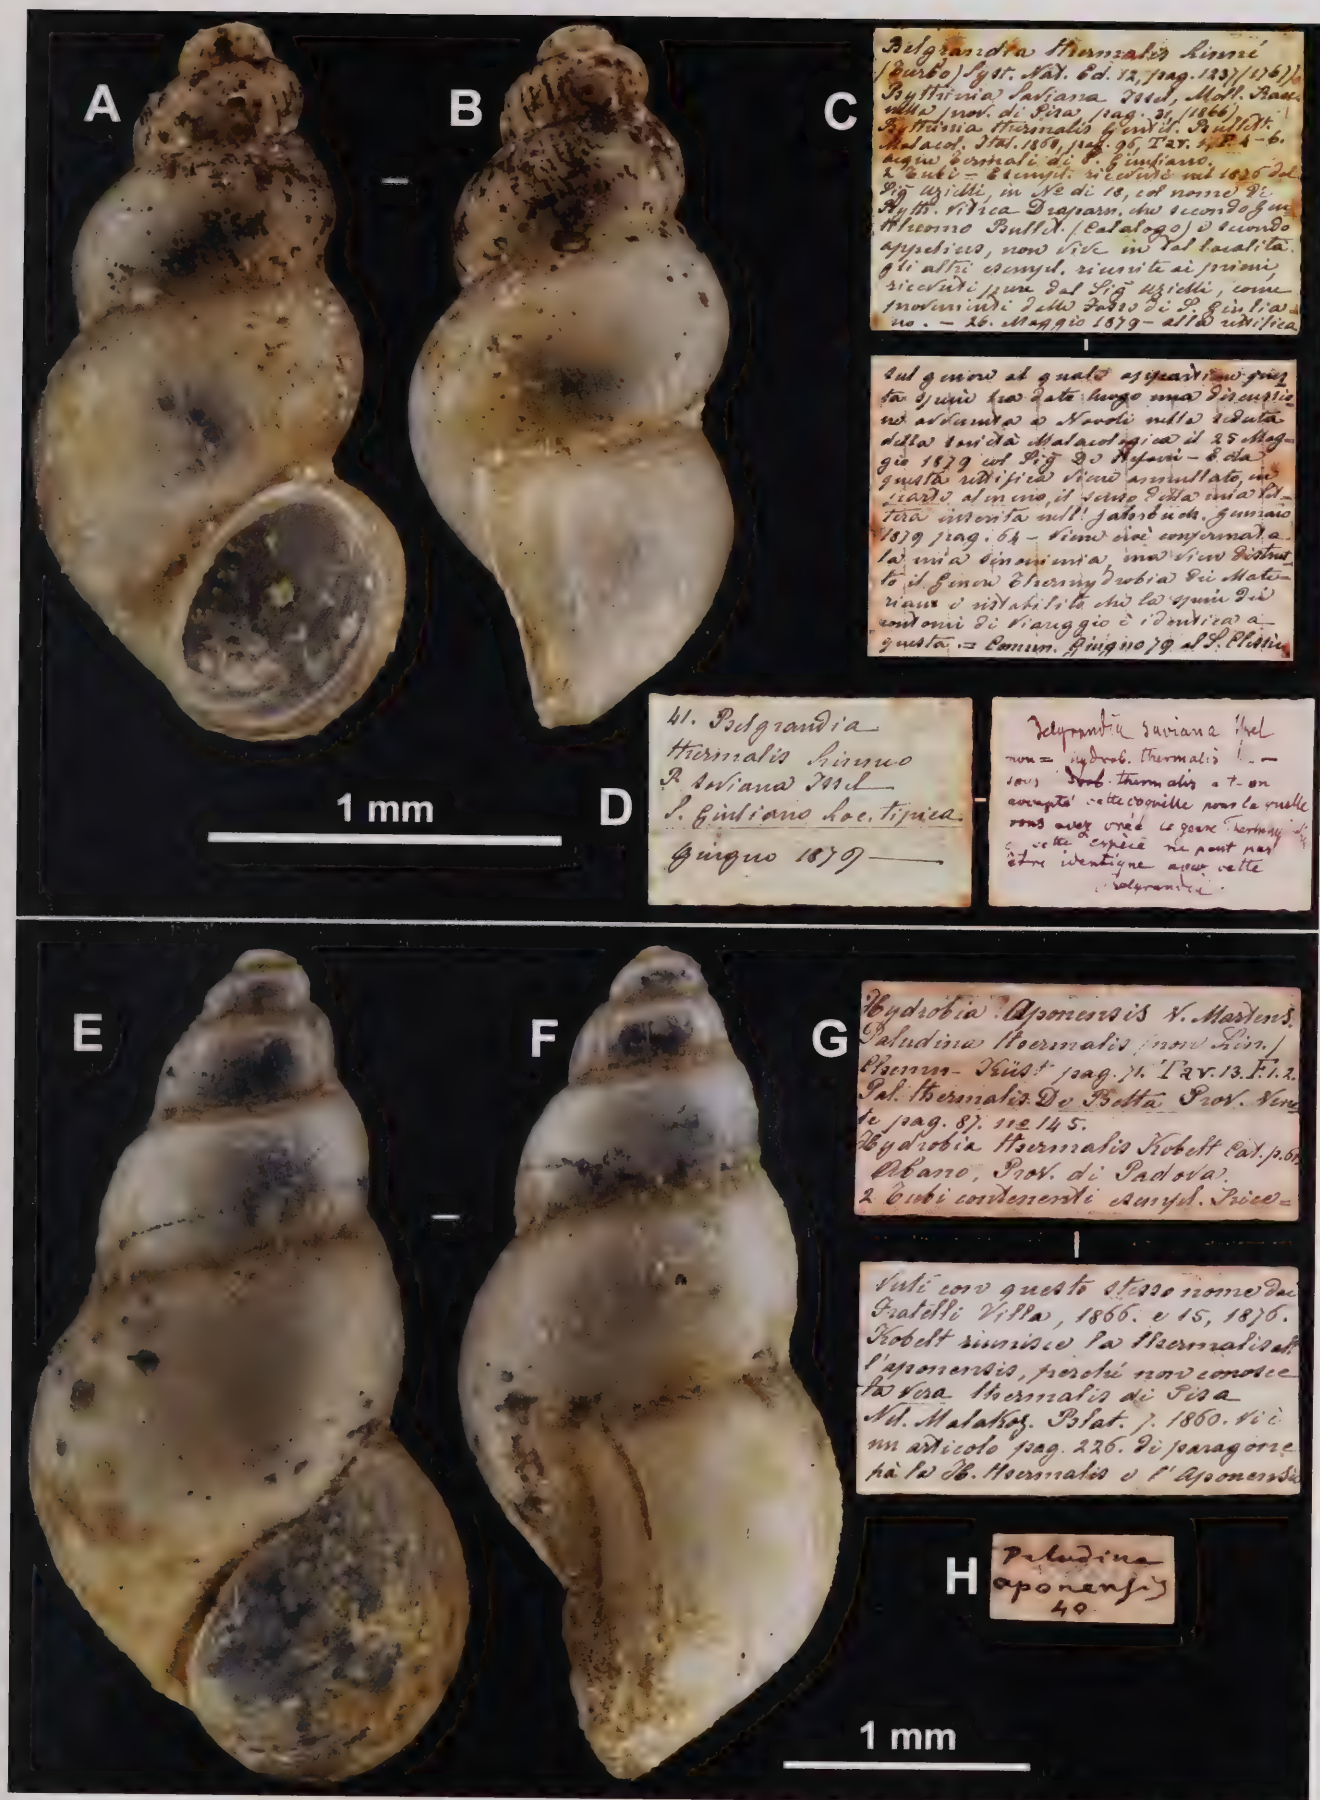 A
B
C
Belgrandia thermalis Linné
(Turbo) Syst. Nat. Ed. 12, pag. 1237 (1767)
Bythinia Saviana Issel, Moll. Rac
nella prov. di Pisa pag. 31, (1866)
Bythinia thermalis Gentil. Bullett.
Malacol. Ital. 1868, pag. 96, Tav. F. 4-6.
acque termali di S. Giuliano.
2 Tubi = Esempl. ricevuti nel 1876 dal
Sig Uzielli, in No di 18, col nome di
Byth. vitrea Draparn. che secondo Gen
Bullet. (Catalogo) e secondo
appelius, non vive in tal località
gli altri esempl. riuniti ai primi,
ricevuti pure dal Sig Uzielli, come
provenienti dalle Fosse di S. Giulia=
no. - 26. Maggio 1879 - alla rettifica
sul genere al quale appartiene ques
ta specie ha dato luogo una discussio
ne avvenuta a Novoli nella seduta
della società Malacologica il 25 Mag=
gio 1879 col Sig De Stefani - E da
questa rettifica viene annullato, in
parte almeno, il senso della mia let=
tera inserita nell' Gennaio
1879 pag. 64 - viene cioè confermata
la mia sinonimia, ma vien distrut=
to il genere Thermhydrobia dei Mate=
riaux e ristabilito che la specie dei
contorni di Viareggio è identica a
questa. = Comun. Giugno 79 al S. Clessin
D
41. Belgrandia
thermalis Linneo
B. saviana Issel
S. Giuliano Loc. tipica.
Giugno 1879
Belgrandia saviana Issel
non = hydrob. thermalis L. -
sous thermalis a t-on
accepté cette coquille pour la quelle
vous avez créé le genre
cette espèce ne peut pas
être identique avec cette
Belgrandia.
1 mm
E
F
G
Hydrobia Aponensis V. Martens.
Paludina thermalis (non Lin.)
Chemn- Küst pag. 71. Tav. 13. F. 1. 2.
Pal. thermalis. De Betta Prov. Vene
te pag. 87. no 145.
Hydrobia thermalis Kobelt Cat. p. 61
Abano, Prov. di Padova.
2 Tubi contenenti esempl. Rice=
vuti con questo stesso nome dai
Fratelli Villa, 1866. e 15, 1876.
Kobelt riunisce la thermalis ed
l'aponensis, perchè non conosce
la vera thermalis di Pisa
Nel. Malakoz. Blat. 7. 1860. vi è
un articolo pag. 226. di paragone
frà la H. thermalis e l'Aponensis
H
Paludina
aponensis
40
1 mm